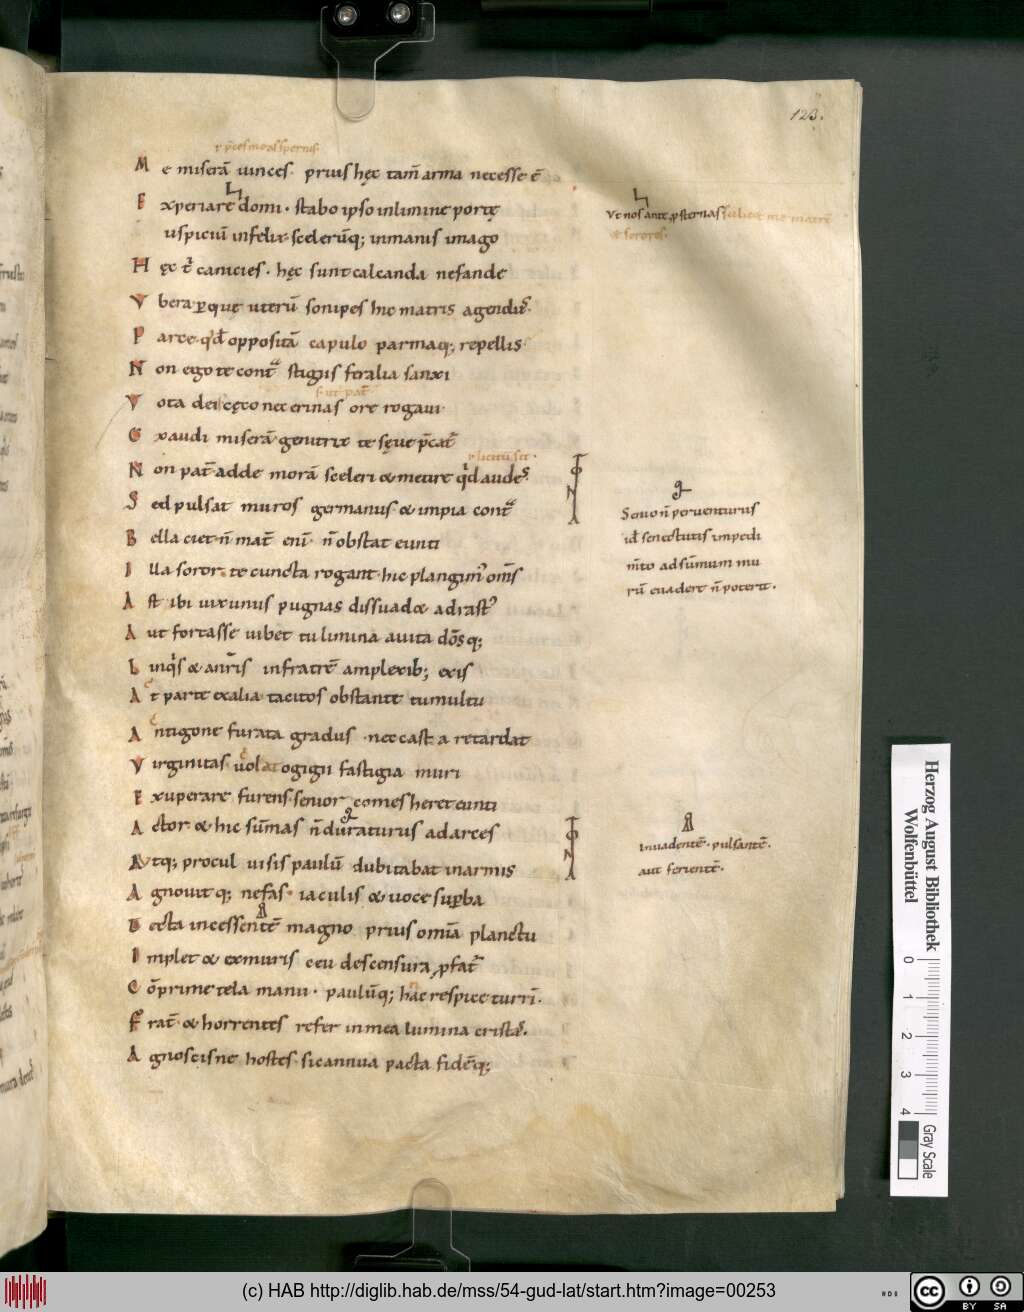 123.
ł p̄ces m̄as spernis
M e miserā uinces. prius hęc tam̄ arma necesse ē
E xperiare domi. stabo ipso in limine portę
uspiciū infelix scelerūq; inmanis imago
H ęc t̄ canicies. hęc sunt calcanda nefande
V bera ꝑque uterū sonipes hic matris agendus.
P arce. qd̄ oppositā capulo parmaq; repellis
N on ego te cont̄ᵃ stigiis feralia sanxi
V ota dei cęco nec erinas ore rogaui
E xaudi miserā genitrix te sęue p̄cat̄
ł licitū sit.
N on pat̄ adde morā sceleri & metire qd̄ audes
S ed pulsat muros germanus & impia cont̄ᵃ
B ella ciet. n̄ mat̄ eni n̄ obstat eunti
I lla soror. te cuncta rogant hic plangim᾽ om̄s
A st ibi uix unus pugnas dissuadet adrast᾽
A ut fortasse iubet tu limina auita dōsq;
L inq̄s & a nr̄is in fratrē amplexib; exis
A t parte ex alia tacitos obstante tumultu
A ntigone furata gradus. nec casta retardat
V irginitas uolat ogigii fastigia muri
E xuperare furens. senior comes heret eunti
A ctor & hic sūmas n̄ duraturus ad arces
A tq; procul uisis paulū dubitabat in armis
A gnouitq; nefas iaculis & uoce suꝑba
T ecta incessentē magno prius omīa planctu
I mplet & ex muris ceu descensura ꝓfat̄
C ōprime tela manu. paulūq; hanc respice turrī.
F rat̄ & horrentes refer in mea lumina cristas.
A gnoscisne hostes sic annua pacta fidēq;
Vt nos ante ꝓsternas scilicet me matrē
& sorores.
Senio n̄ peruenturus
id senectutis impedi
m̄to ad sūmum mu
rū euadere n̄ poterit.
inuadentē. pulsantē.
aut ferientē.
Herzog August Bibliothek
Wolfenbüttel
0 1 2 3 4
Gray Scale
(c) HAB http://diglib.hab.de/mss/54-gud-lat/start.htm?image=00253
cc BY SA